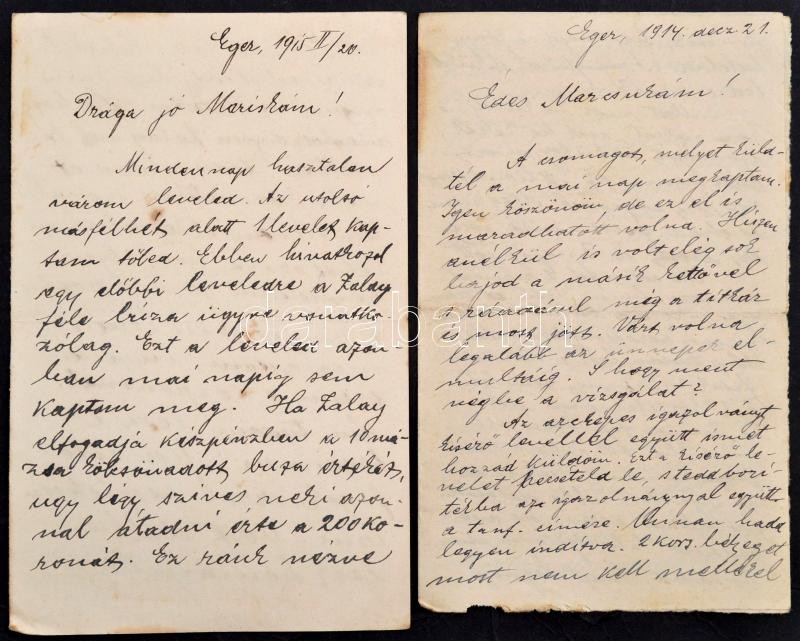 Eger, 1915 II/20.
Drága jó Mariskám!
Mindennap hasztalan
várom leveled. Az utolsó
másfélhét alatt 1 levelet kap-
tam tőled. Ebben hivatkozol
egy előbbi leveledre a Zalay
féle buza ügyre vonatko-
zólag. Ezt a leveled azon-
ban mai napig sem
kaptam meg. Ha Zalay
elfogadja készpénzben a 10 má-
zsa kölcsönadott buza értékét,
ugy légy szives neki azon-
nal átadni érte a 200 ko-
ronát. Ez ránk nézve
Eger, 1914. decz 21.
Édes Marcsukám!
A csomagot, melyet küld-
tél a mai nap megkaptam.
Igen köszönöm, de ez el is
maradhatott volna. Hiszen
anélkül is volt elég sok
bajod a másik kettővel
s ráadásul még a titkár
is most jött. Várt volna
legalább az ünnepek el-
multáig. S hogy ment
végbe a vizsgálat?
Az arcképes igazolványt
kisérő levéllel együtt ismét
hozzád küldöm. Ezt a kisérő le-
velet pecsételd le, s tedd bori-
tékba az igazolványnyal együtt
a tanf. címére. Onnan hada
legyen inditva. 2 kor. bélyeget
most nem kell mellékel
databanth